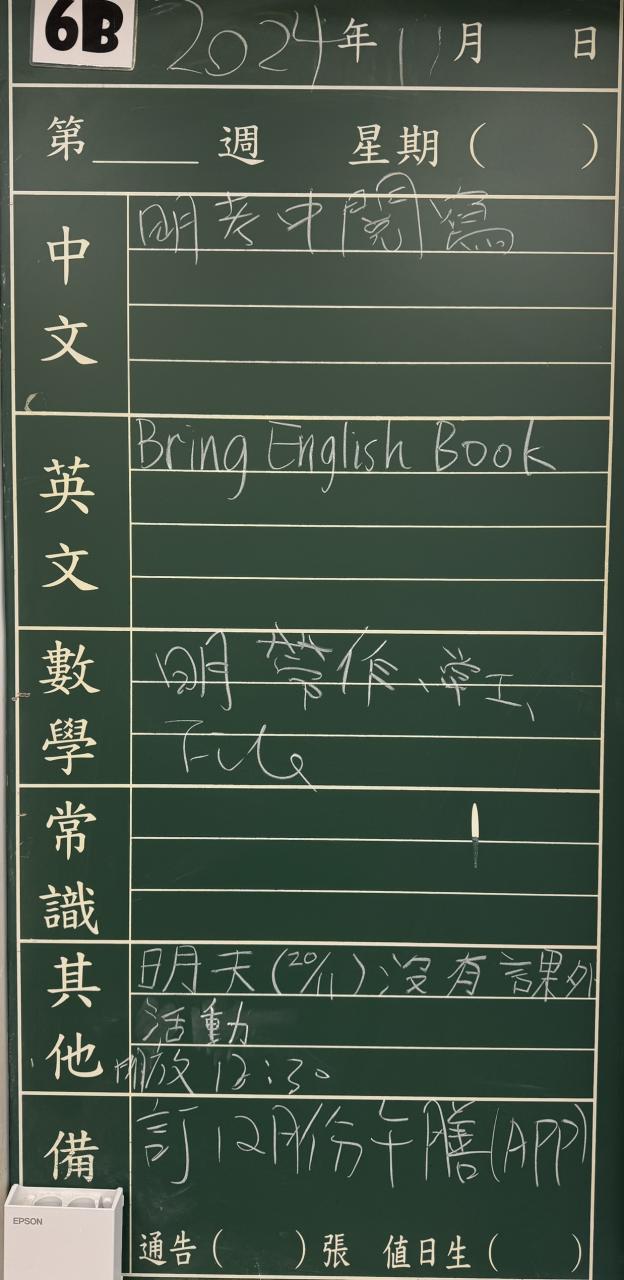 6B 2024年11月 日
第 週 星期( )
中文
明考中閱寫
英文
Bring English Book
數學
明帶作、學工、
常識
其他
明天(20/11)沒有課外
活動
明放12:30
備
訂12月份午膳(APP)
EPSON
通告( )張 值日生( )